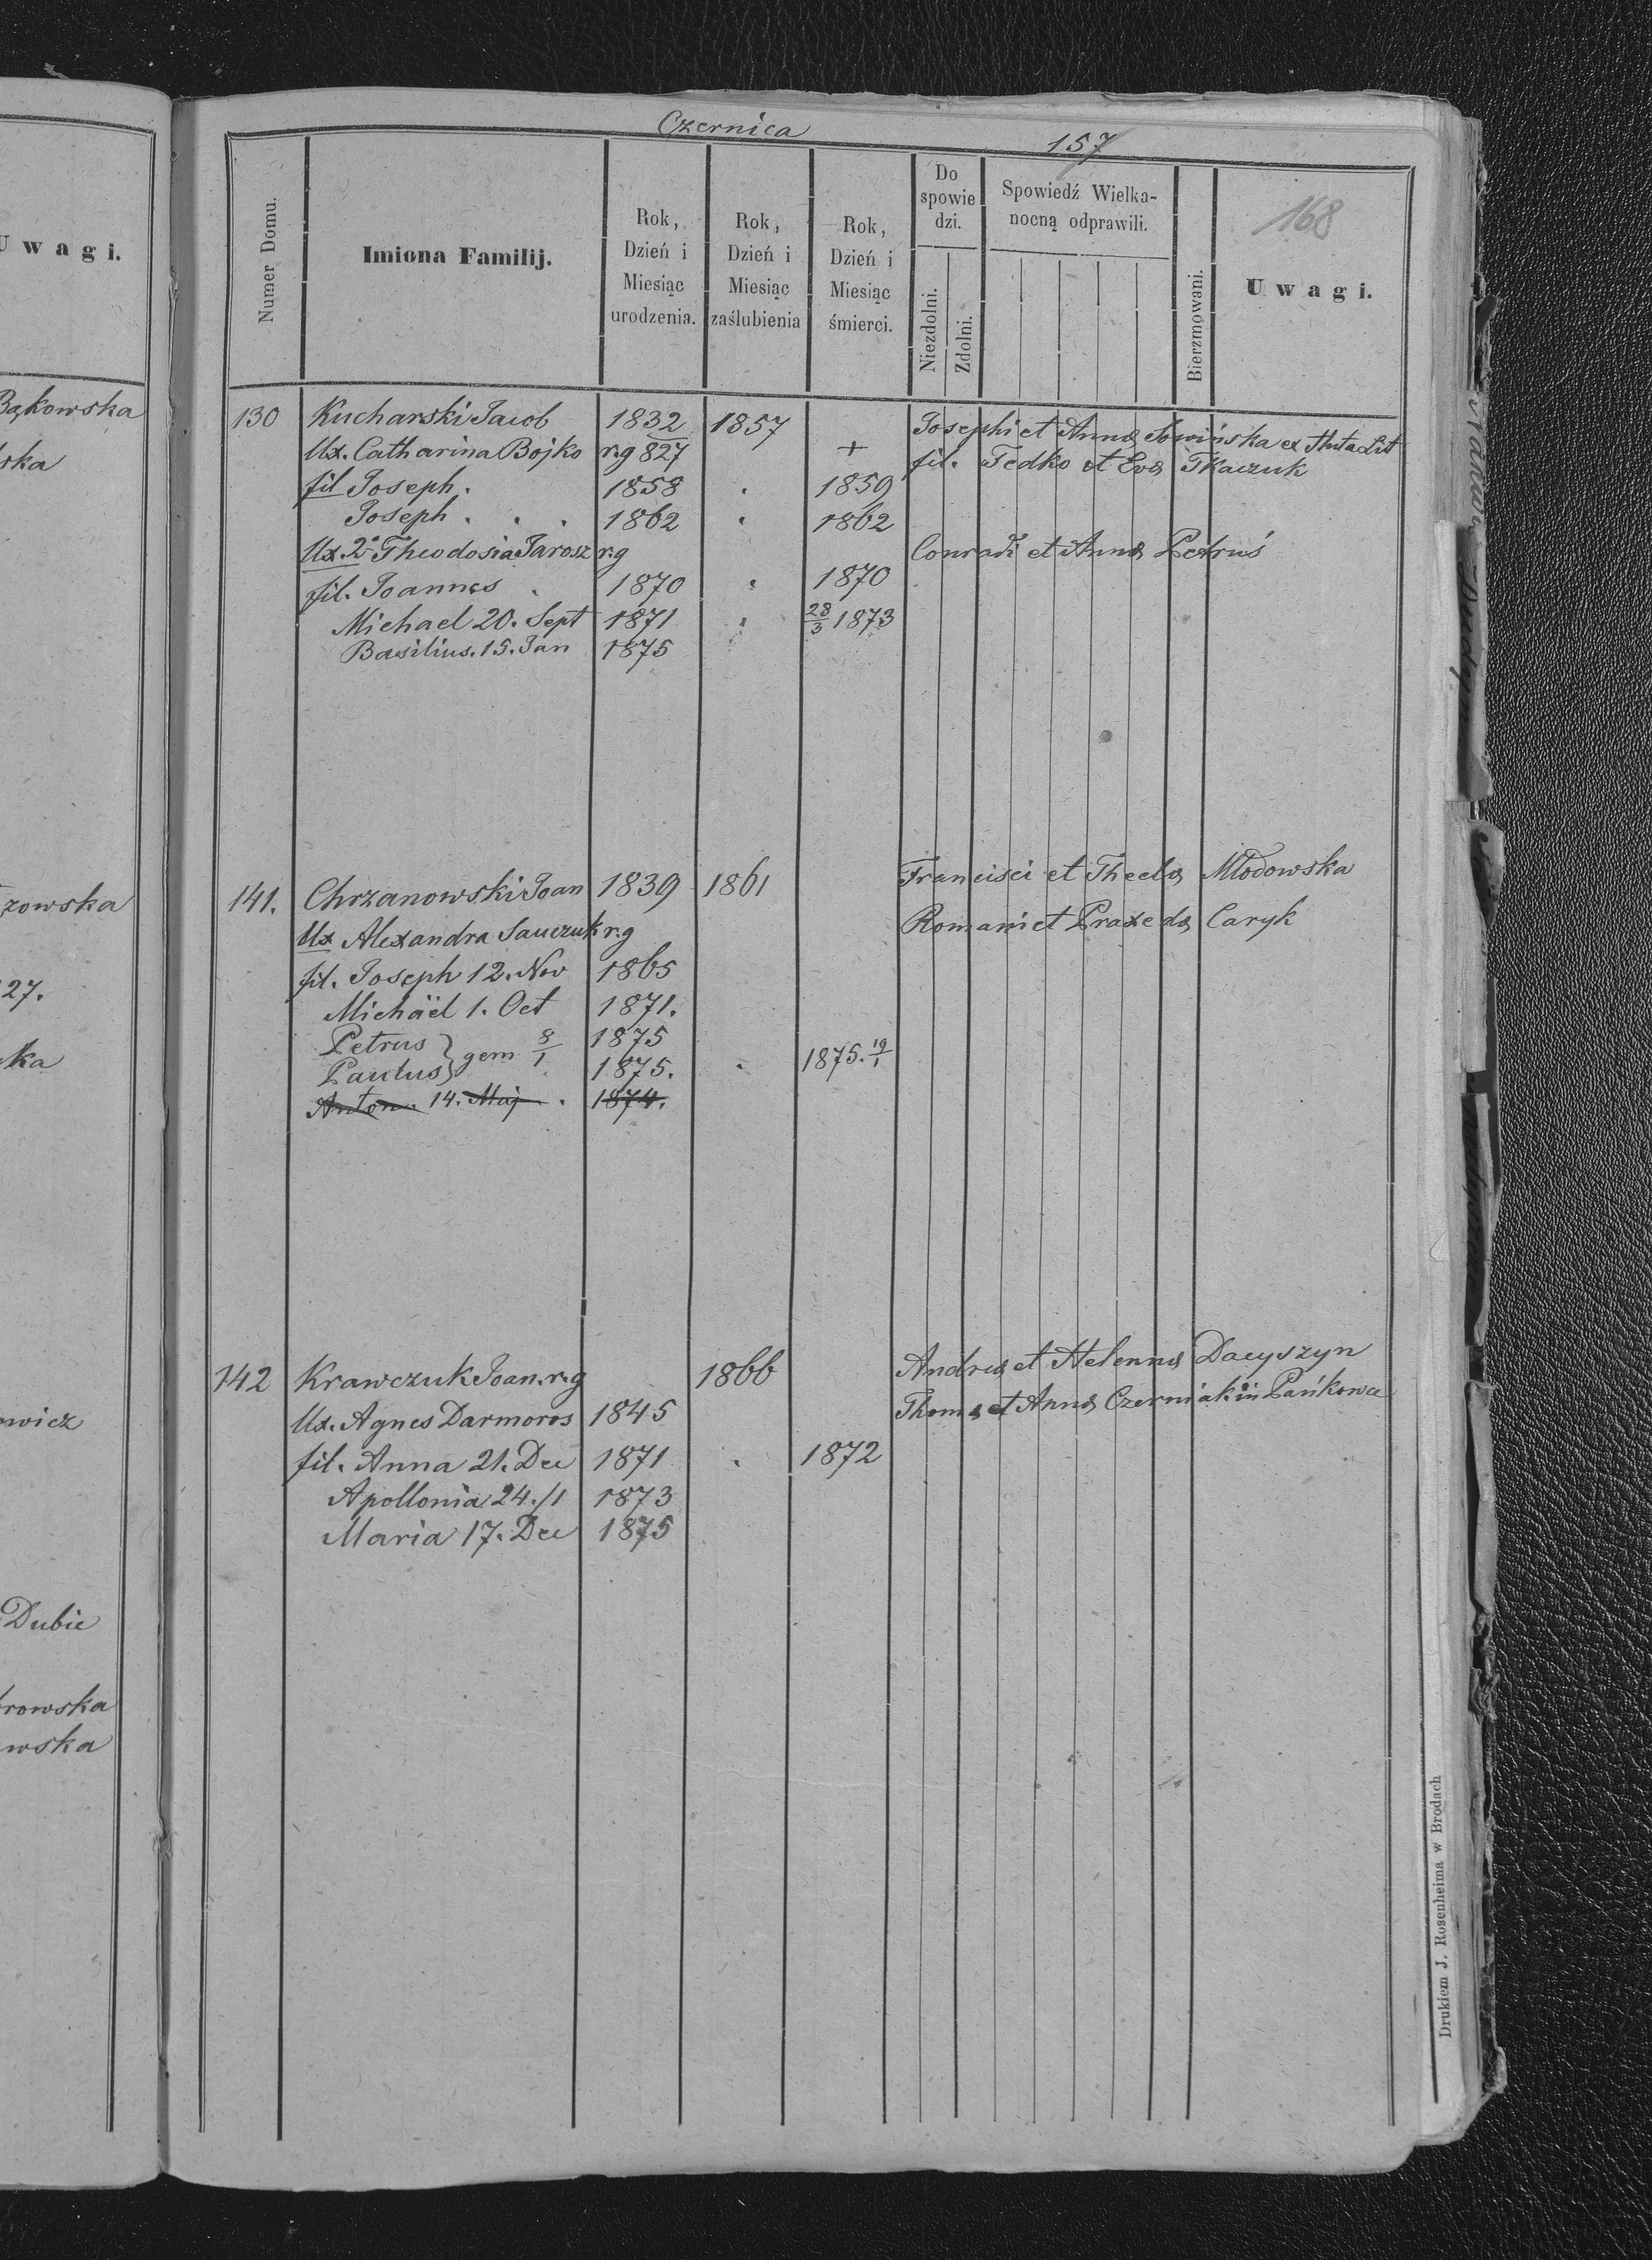 Czernica
157
168
Numer Domu.
Imiona Familij.
Rok, Dzień i Miesiąc urodzenia.
Rok, Dzień i Miesiąc zaślubienia
Rok, Dzień i Miesiąc śmierci.
Do spowiedzi.
Niezdolni.
Zdolni.
Spowiedź Wielkanocną odprawili.
Bierzmowani.
Uwagi.
130 Kucharski Jacob 1832 1857 Josephi et Annæ Sowińska ex Huta Lit
Ux. Catharina Bojko r.g 827 + fil. Fedko et Evæ Tkaczuk
fil Joseph. 1858 . 1859
Joseph . . . 1862 . 1862
Ux. 2ª Theodosia Jarosz r.g Conradi et Annæ Petruś
fil. Joannes . 1870 . 1870
Michael 20. Sept 1871 . 28/3 1873
Basilius. 15. Jan 1875
141. Chrzanowski Joan 1839 1861 Francisci et Theclæ Młodowska
Ux Alexandra Sauczuk r.g Romani et Praxedæ Caryk
fil. Joseph 12. Nov 1865
Michaël 1. Oct 1871.
Petrus } gem 8/1 1875
Paulus } 1875. . 1875. 19/1
Anton. 14. Maj . 1874.
142 Krawczuk Joan. r.g 1866 Andreæ et Helennæ Dacyszyn
Ux. Agnes Darmoros 1845 Thomæ et Annæ Czerniak in Pańkowce
fil. Anna 21. Dec 1871 . 1872
Apollonia 24./1 1873
Maria 17. Dec 1875
Drukiem J. Rosenheima w Brodach
Uwagi.
Bąkowska
ska
zowska
27.
ka
owicz
Dubie
rowska
wska